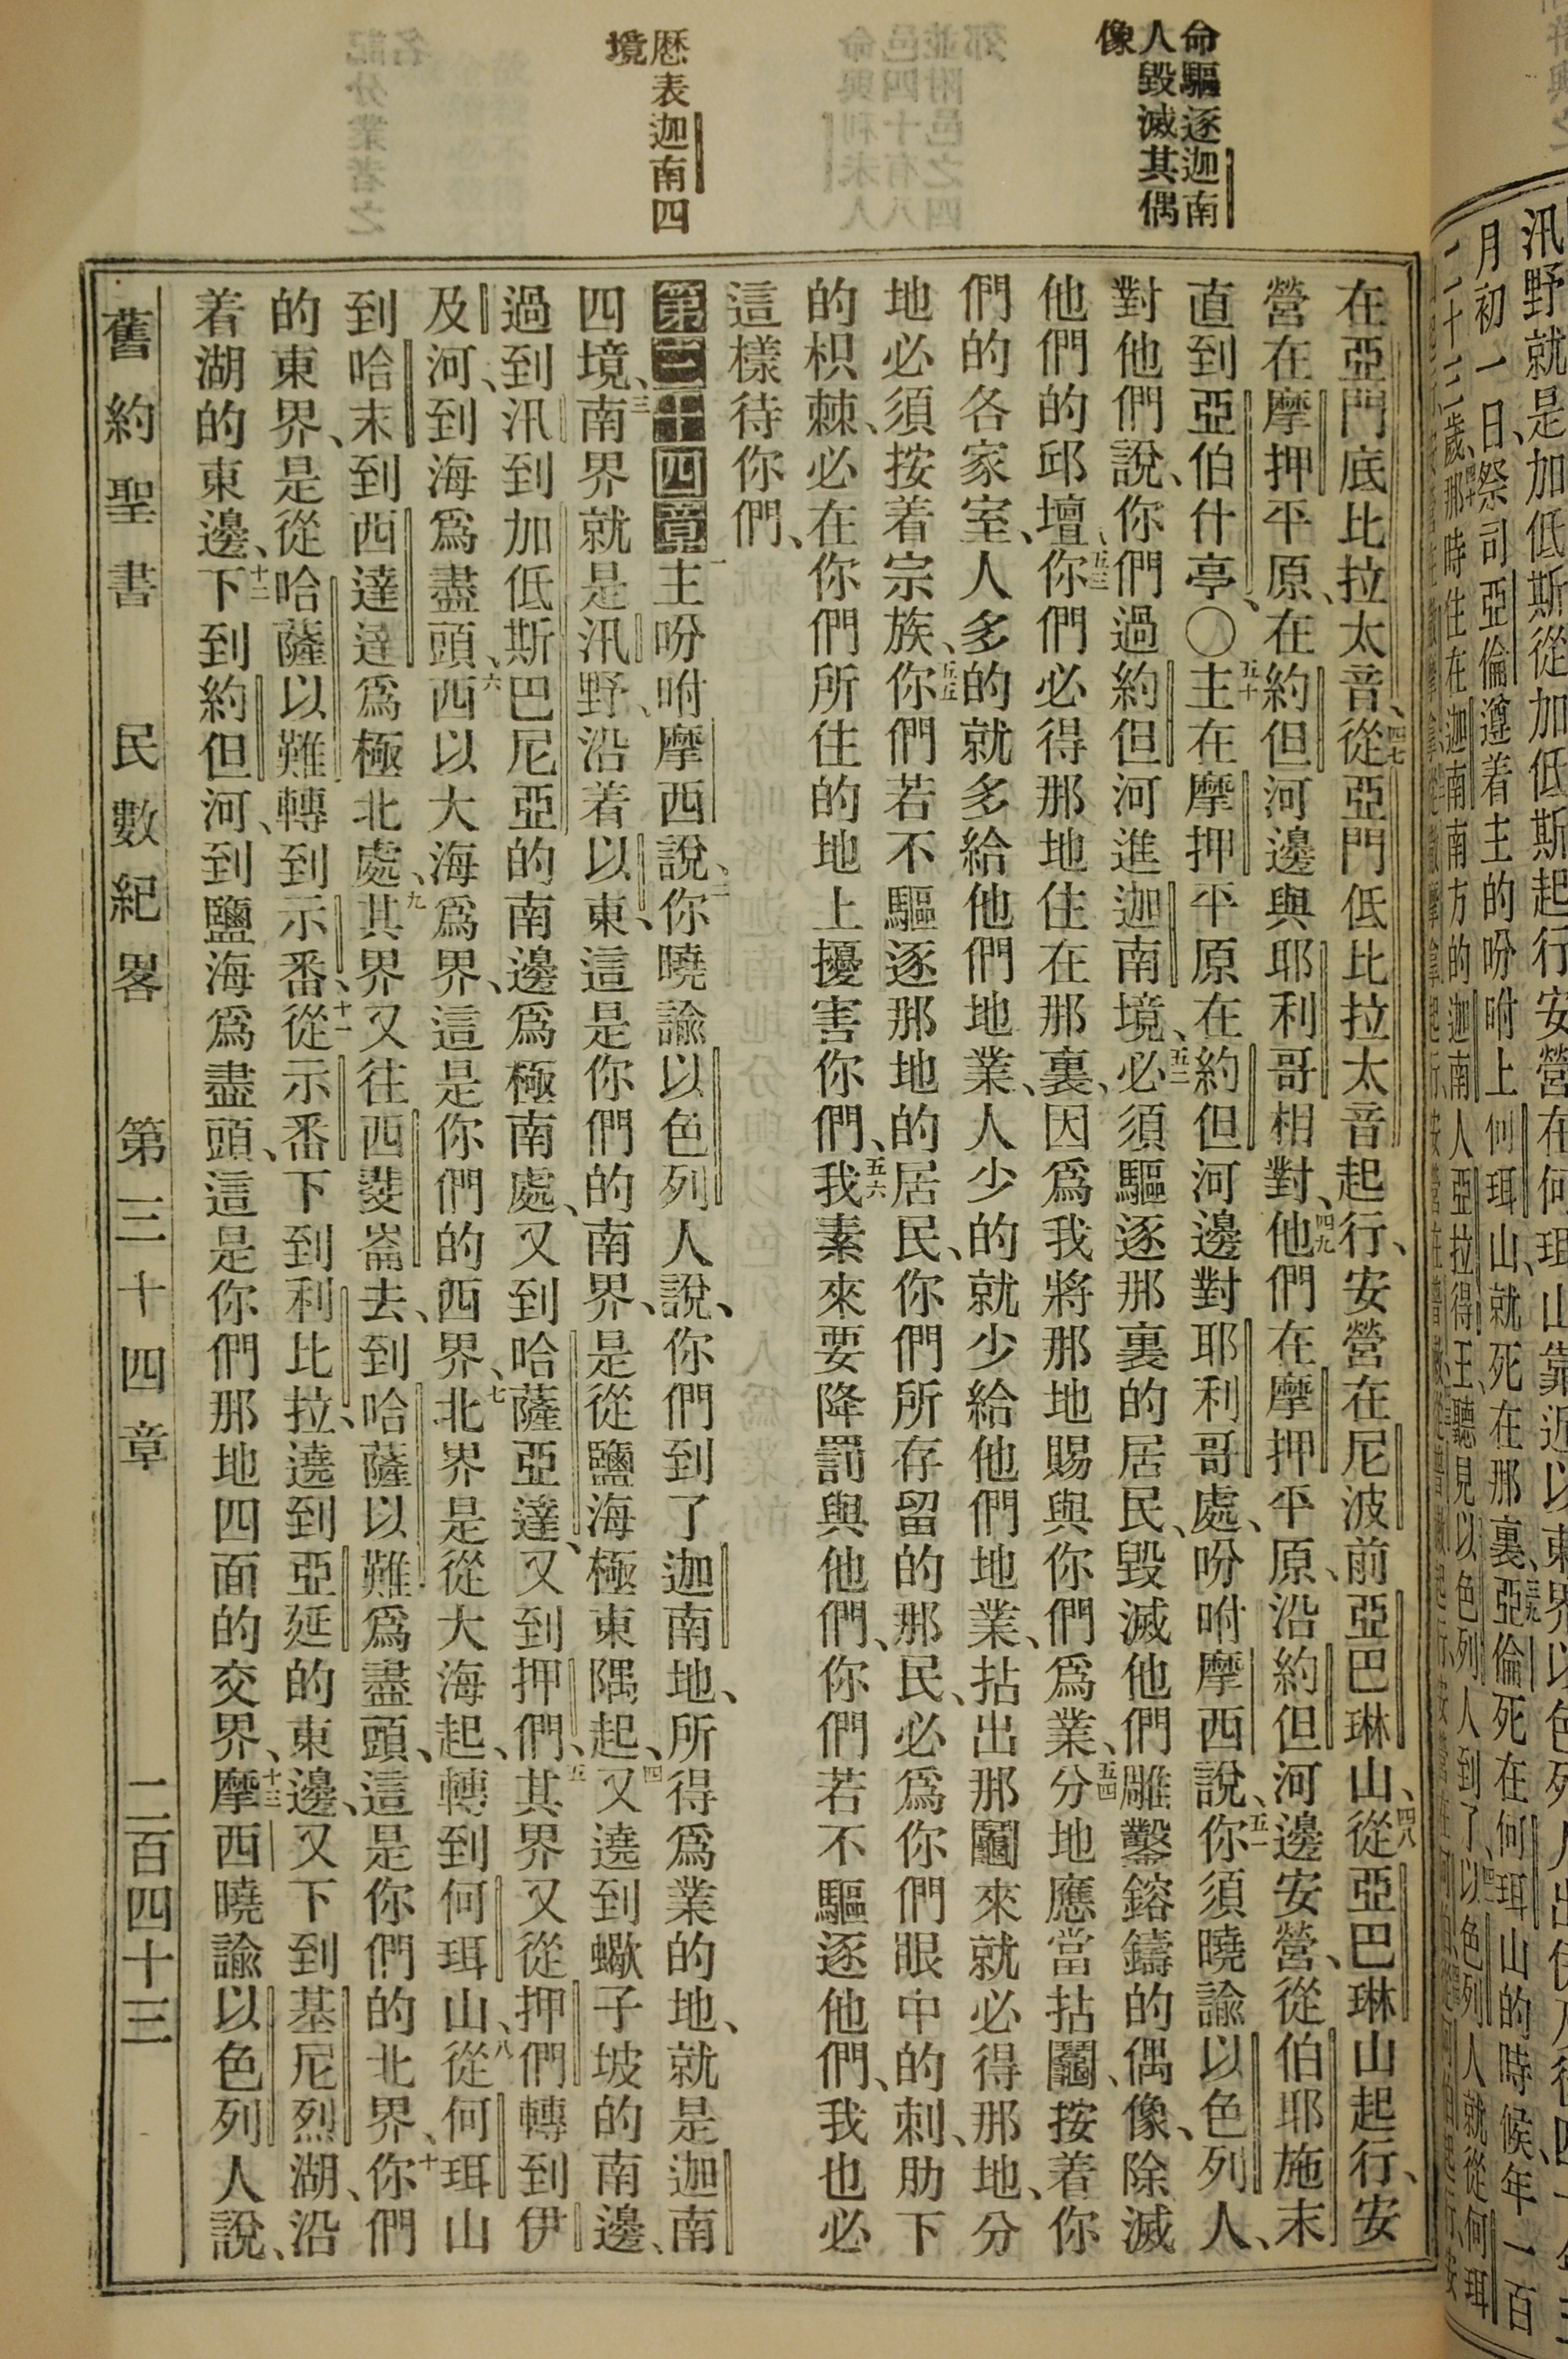 汛野就是加低斯從加低斯起行安營在何珥山靠近以東界以色列人出
月初一日、祭司亞倫遵着主的吩咐上何珥山、就死在那裏、亞倫死在何珥山的時候、年一百
二十三歲、那時住在迦南南方的迦南人亞拉得王、聽見以色列人到了、以色列人就從何珥
命驅逐迦南
人毀滅其偶
像
歷表迦南四
境
在亞門底比拉太音、四七從亞門低比拉太音起行、安營在尼波前亞巴琳山、四八從亞巴琳山起行、安
營在摩押平原、在約但河邊與耶利哥相對、四九他們在摩押平原、沿約但河邊安營、從伯耶施末
直到亞伯什亭、〇五十主在摩押平原在約但河邊對耶利哥處、吩咐摩西說、五一你須曉諭以色列人、
對他們說、你們過約但河進迦南境、五二必須驅逐那裏的居民、毀滅他們雕鑿鎔鑄的偶像、除滅
他們的邱壇、五三你們必得那地住在那裏、因爲我將那地賜與你們爲業、五四分地應當拈鬮、按着你
們的各家室、人多的就多給他們地業、人少的就少給他們地業、拈出那鬮來就必得那地、分
地必須按着宗族、五五你們若不驅逐那地的居民、你們所存留的那民、必爲你們眼中的刺、肋下
的枳棘、必在你們所住的地上擾害你們、五六我素來要降罰與他們、你們若不驅逐他們、我也必
這樣待你們、
第三十四章一主吩咐摩西說、二你曉諭以色列人說、你們到了迦南地、所得爲業的地、就是迦南
四境、三南界就是汛野、沿着以東、這是你們的南界、是從鹽海極東隅起、四又遶到蠍子坡的南邊、
過到汛到加低斯巴尼亞的南邊爲極南處、又到哈薩亞達、又到押們、五其界又從押們轉到伊
及河、到海爲盡頭、六西以大海爲界、這是你們的西界、七北界是從大海起、轉到何珥山、八從何珥山
到哈末、到西達達爲極北處、九其界又往西斐崙去、到哈薩以難爲盡頭、這是你們的北界、十你們
的東界、是從哈薩以難轉到示番、十一從示番下到利比拉、遶到亞延的東邊、又下到基尼烈湖、沿
着湖的東邊、十二下到約但河、到鹽海爲盡頭、這是你們那地四面的交界、十三摩西曉諭以色列人說、
舊約聖書 民數紀畧 第三十四章 二百四十三